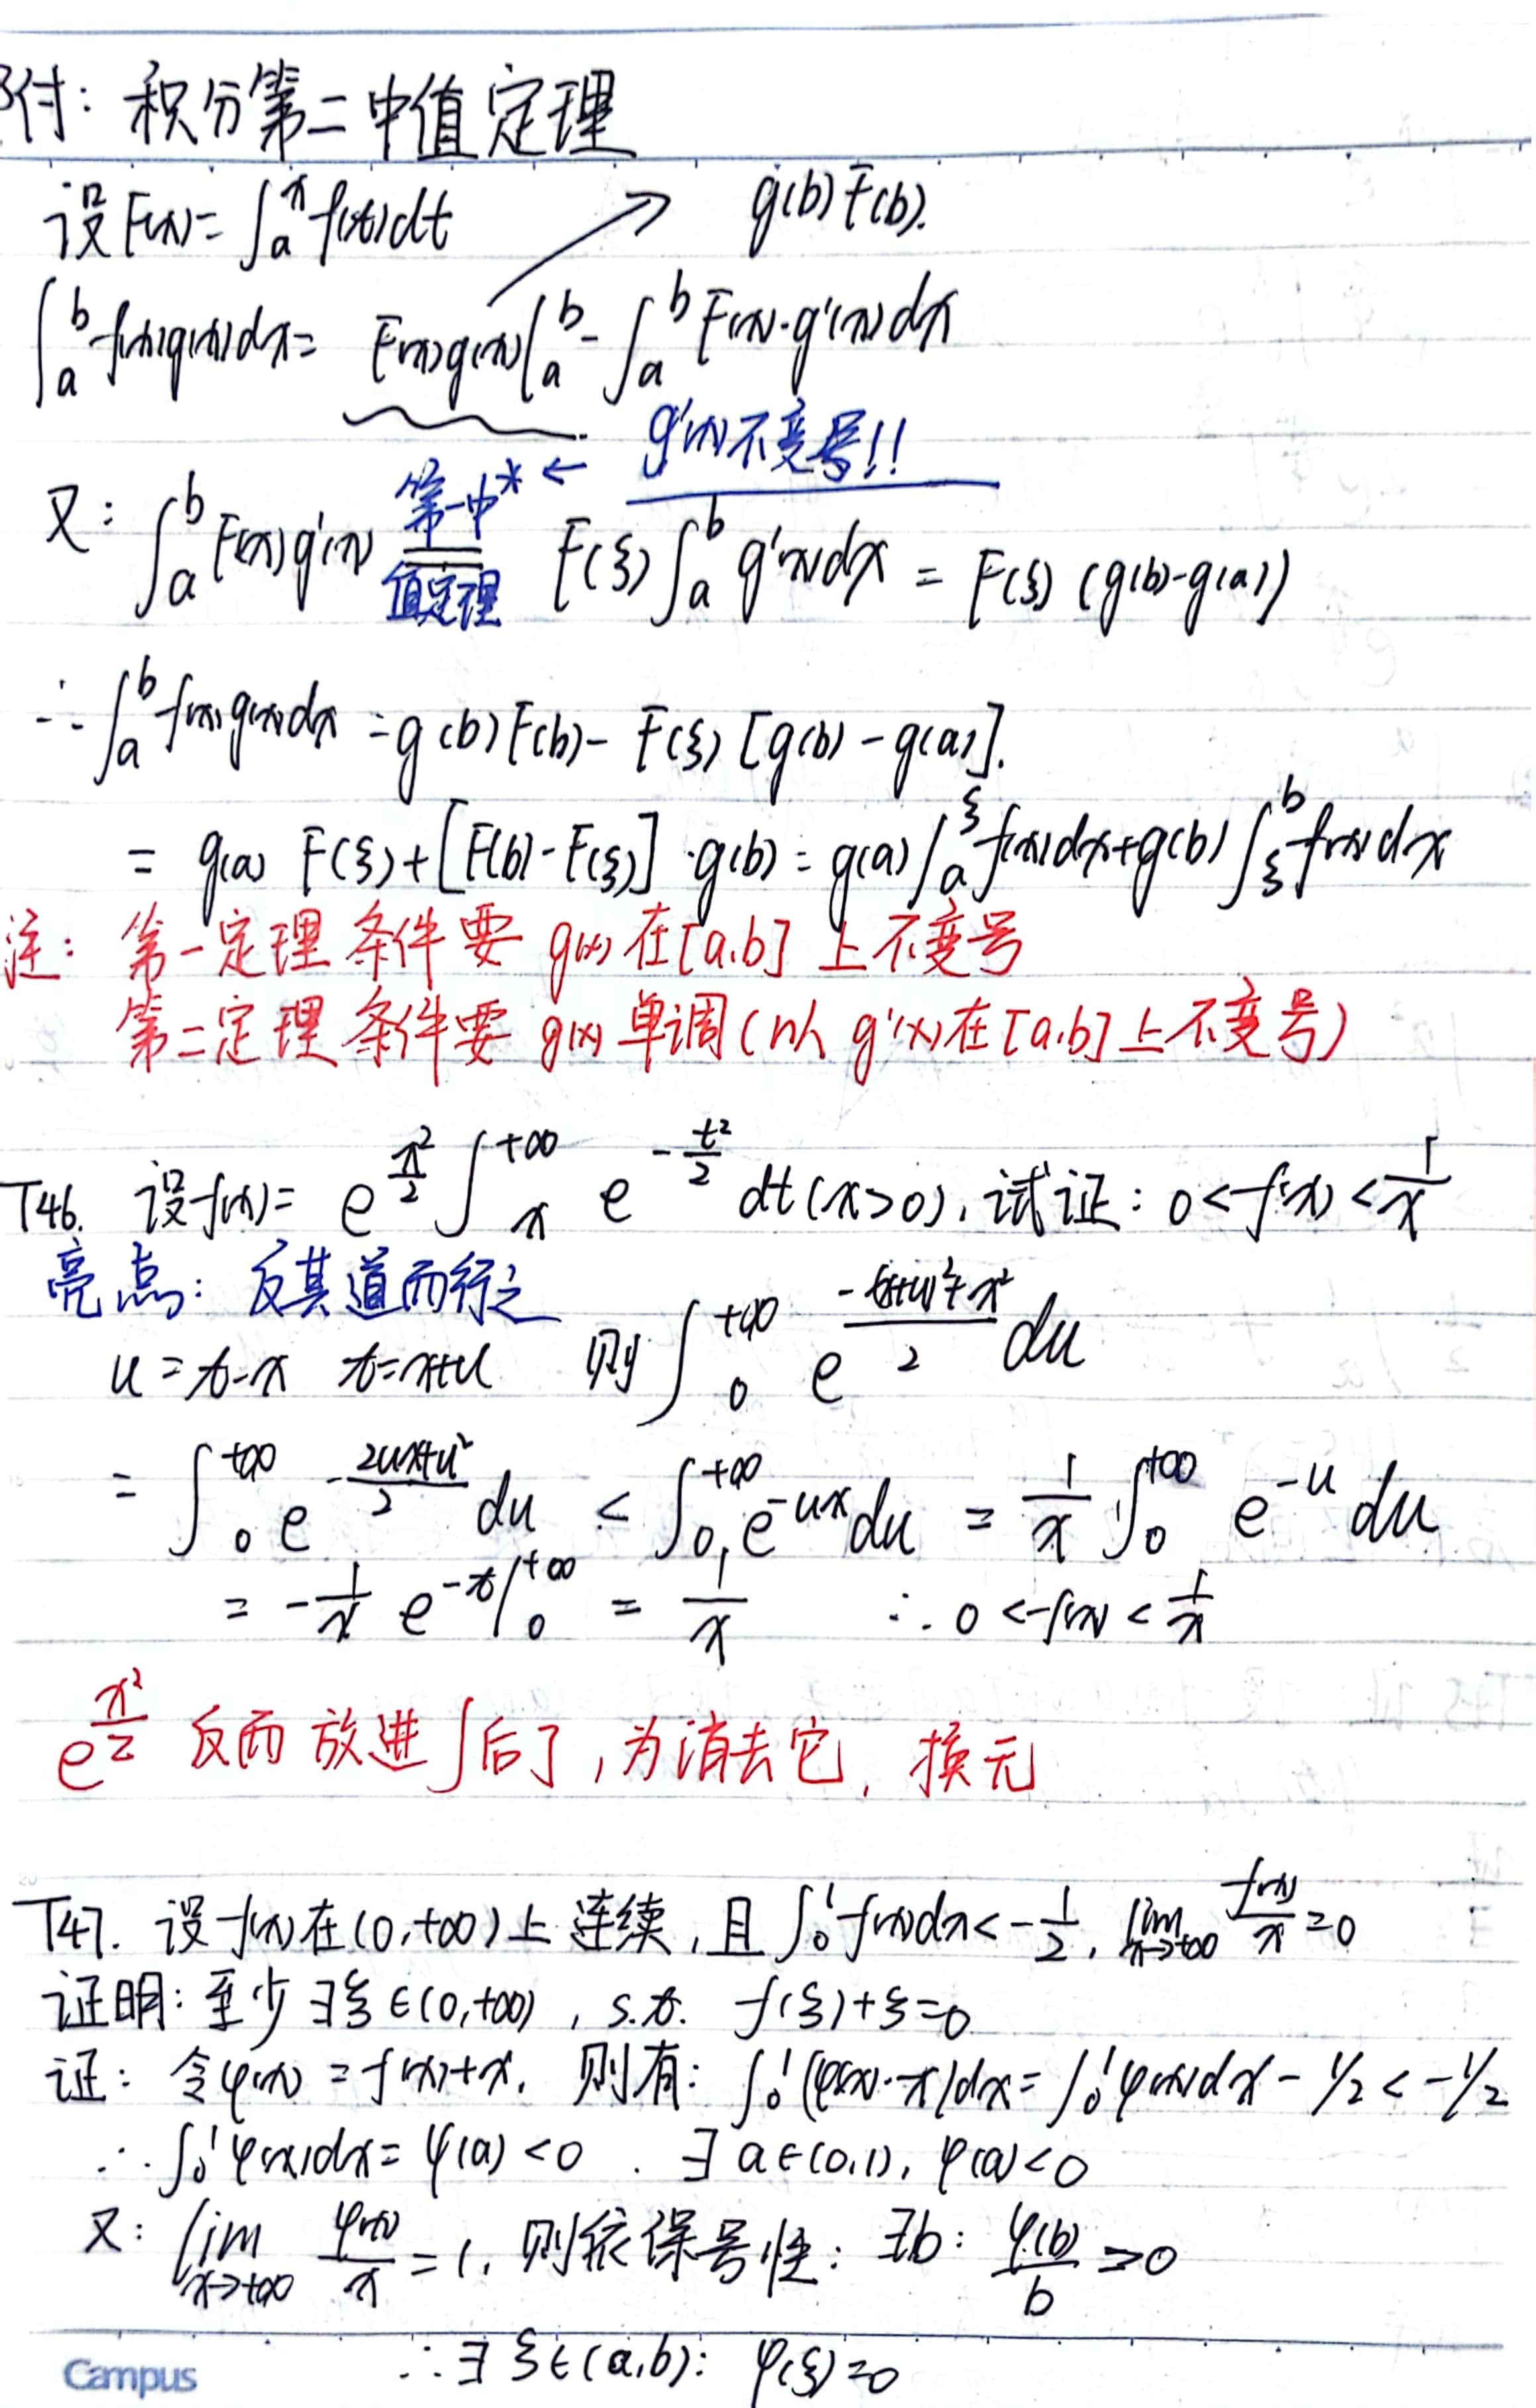 附：积分第二中值定理
设F(x)=∫_a^x f(t)dt ↗ g(b)F(b).
∫_a^b f(x)g(x)dx= F(x)g(x)|_a^b - ∫_a^b F(x)·g'(x)dx
g'(x)不变号!!
又：∫_a^b F(x)g'(x) 第一中*← 值定理 = F(ξ)∫_a^b g'(x)dx = F(ξ) (g(b)-g(a))
∴∫_a^b f(x)g(x)dx = g(b)F(b) - F(ξ) [g(b)-g(a)].
= g(a) F(ξ)+[F(b)-F(ξ)]·g(b) = g(a)∫_a^ξ f(x)dx+g(b)∫_ξ^b f(x)dx
注：第一定理条件要 g(x)在[a,b]上不变号
第二定理条件要 g(x)单调(以 g'(x)在[a,b]上不变号)
T46. 设f(x)= e^{x²/2} ∫_x^{+∞} e^{-t²/2} dt (x>0), 试证：0<f(x)<1/x
亮点：反其道而行之
u=t-x t=x+u 则 ∫_0^{+∞} e^{(-(x+u)²+x²)/2} du
= ∫_0^{+∞} e^{-(2ux+u²)/2} du < ∫_0^{+∞} e^{-ux}du = 1/x ∫_0^{+∞} e^{-u} du
= -1/x e^{-t}|_0^{+∞} = 1/x ∴ 0<f(x)<1/x
e^{x²/2} 反而放进∫后了, 为消去它, 换元
T47. 设f(x)在(0,+∞)上连续, 且∫_0^1 f(x)dx<-1/2, lim_{x→+∞} f(x)/x=0
证明：至少∃ξ∈(0,+∞), s.t. f(ξ)+ξ=0
证：令φ(x)=f(x)+x. 则有：∫_0^1 (φ(x)-x)dx=∫_0^1 φ(x)dx - 1/2 < -1/2
∴∫_0^1 φ(x)dx=φ(a)<0. ∃a∈(0,1), φ(a)<0
又：lim_{x→+∞} φ(x)/x=1. 则依保号性：∃b：φ(b)/b>0
∴∃ξ∈(a,b)：φ(ξ)=0
Campus